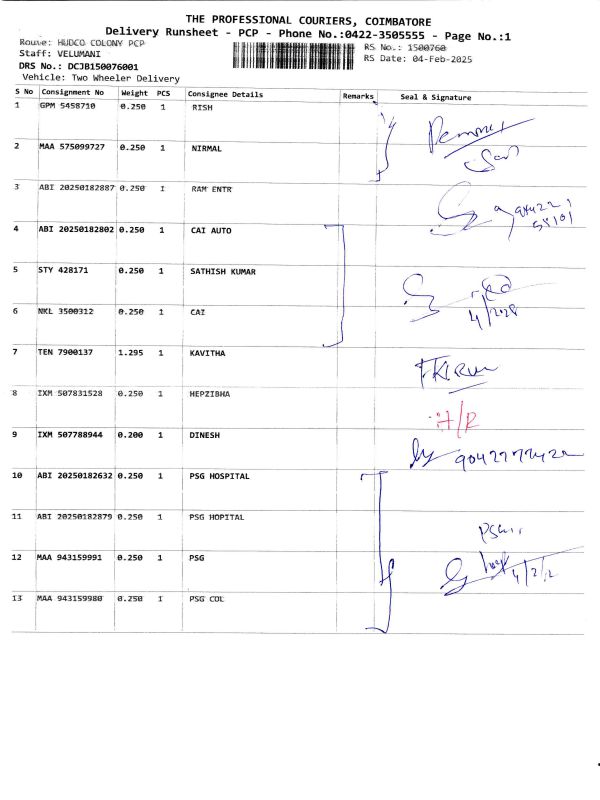 THE PROFESSIONAL COURIERS, COIMBATORE
Delivery Runsheet - PCP - Phone No.:0422-3505555 - Page No.:1
Route: HUDCO COLONY PCP
RS No.: 1500760
Staff: VELUMANI
RS Date: 04-Feb-2025
DRS No.: DCJB150076001
Vehicle: Two Wheeler Delivery
S No Consignment No Weight PCS Consignee Details Remarks Seal & Signature
1 GPM 5458710 0.250 1 RISH
2 MAA 575099727 0.250 1 NIRMAL
3 ABI 20250182887 0.250 1 RAM ENTR
4 ABI 20250182802 0.250 1 CAI AUTO
5 STY 428171 0.250 1 SATHISH KUMAR
6 NKL 3500312 0.250 1 CAI
7 TEN 7900137 1.295 1 KAVITHA
8 IXM 507831528 0.250 1 HEPZIBHA
H/R
9 IXM 507788944 0.200 1 DINESH
10 ABI 20250182632 0.250 1 PSG HOSPITAL
11 ABI 20250182879 0.250 1 PSG HOPITAL
12 MAA 943159991 0.250 1 PSG
13 MAA 943159980 0.250 1 PSG COL